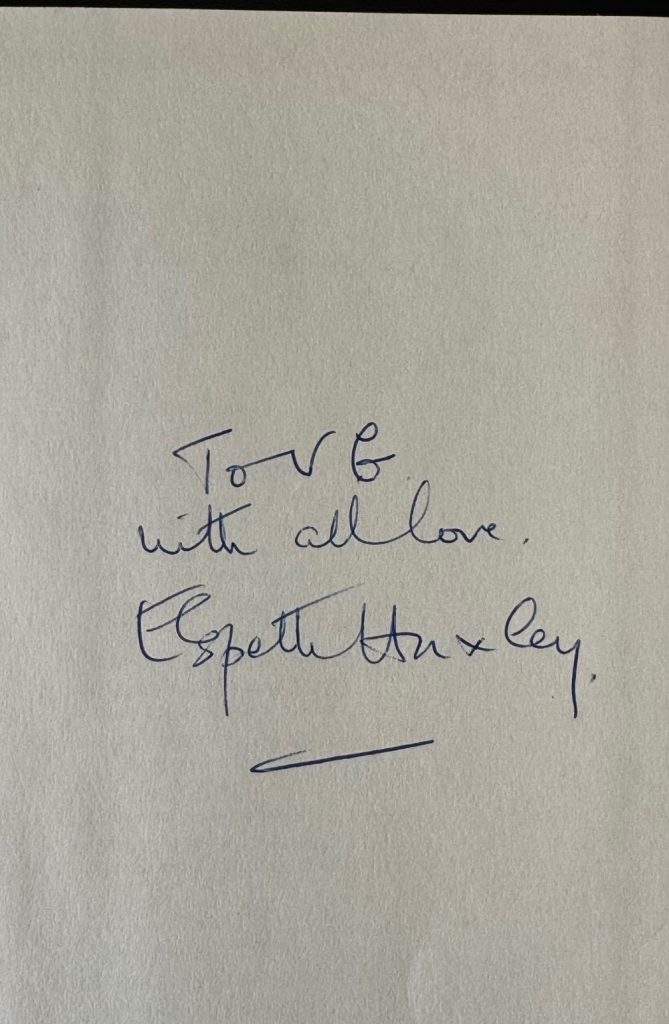 To V G
with all love.
Elspeth Huxley.